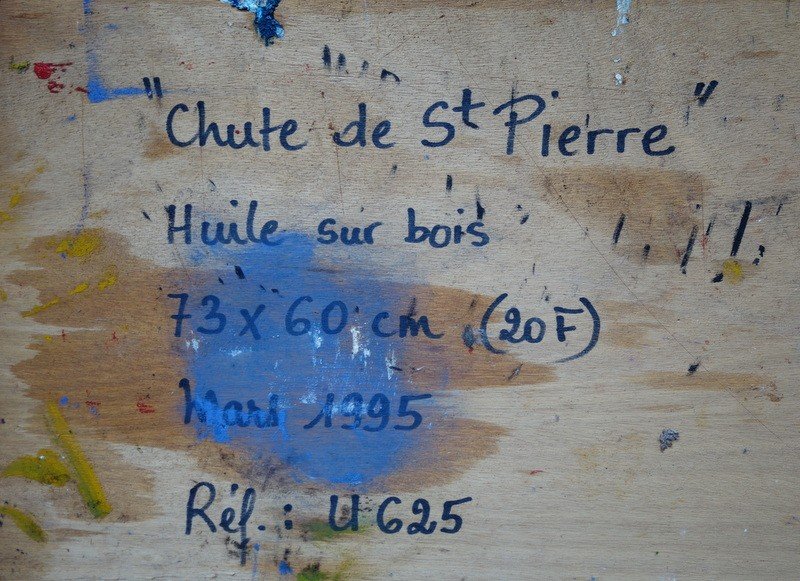 "Chute de St Pierre"
Huile sur bois
73 x 60 cm (20F)
Mars 1995
Réf. : U 625